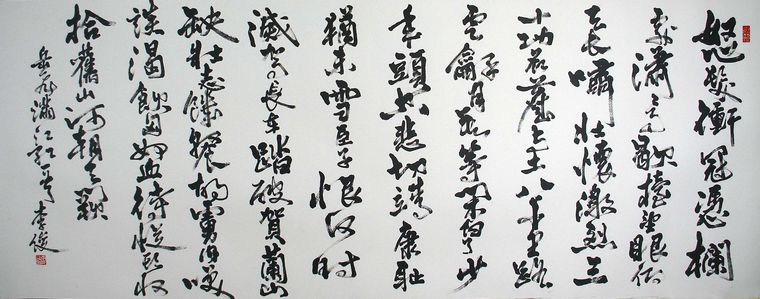 怒髮衝冠憑欄
處瀟瀟雨歇抬望眼仰
天長嘯壯懷激烈三
十功名塵與土八千里路
雲龢月莫等閒白了少
年頭空悲切靖康恥
猶未雪臣子恨何時
滅駕長車踏破賀蘭山
缺壯志饑餐胡虜肉笑
談渴飲匈奴血待從頭收
拾舊山河朝天闕
岳飛滿江紅一首 李俊